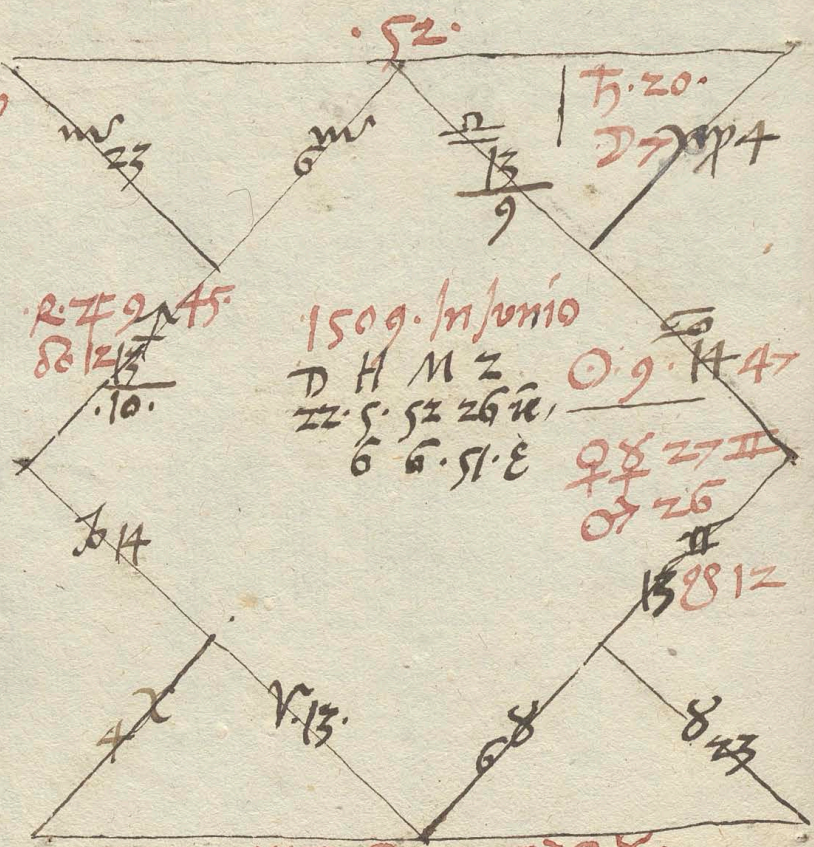 · 52 ·
♄ · 20 ·
☽ 7 ♍ 4
♏ 23
♏ 6
♎ 13
9
R · ♃ 9 ♐ 45 ·
☊ 12 13
· 10 ·
1509 · In Junio
D H M Z
22 · 5 · 52 26
6 6 · 51 ·
♋
☉ · 9 · 14 47
♀ ☿ 27 ♊
♂ 26
♊
13 ☋ 12
♑ 14
♓ 4
♈ · 13 ·
6 ♉
♉ 23